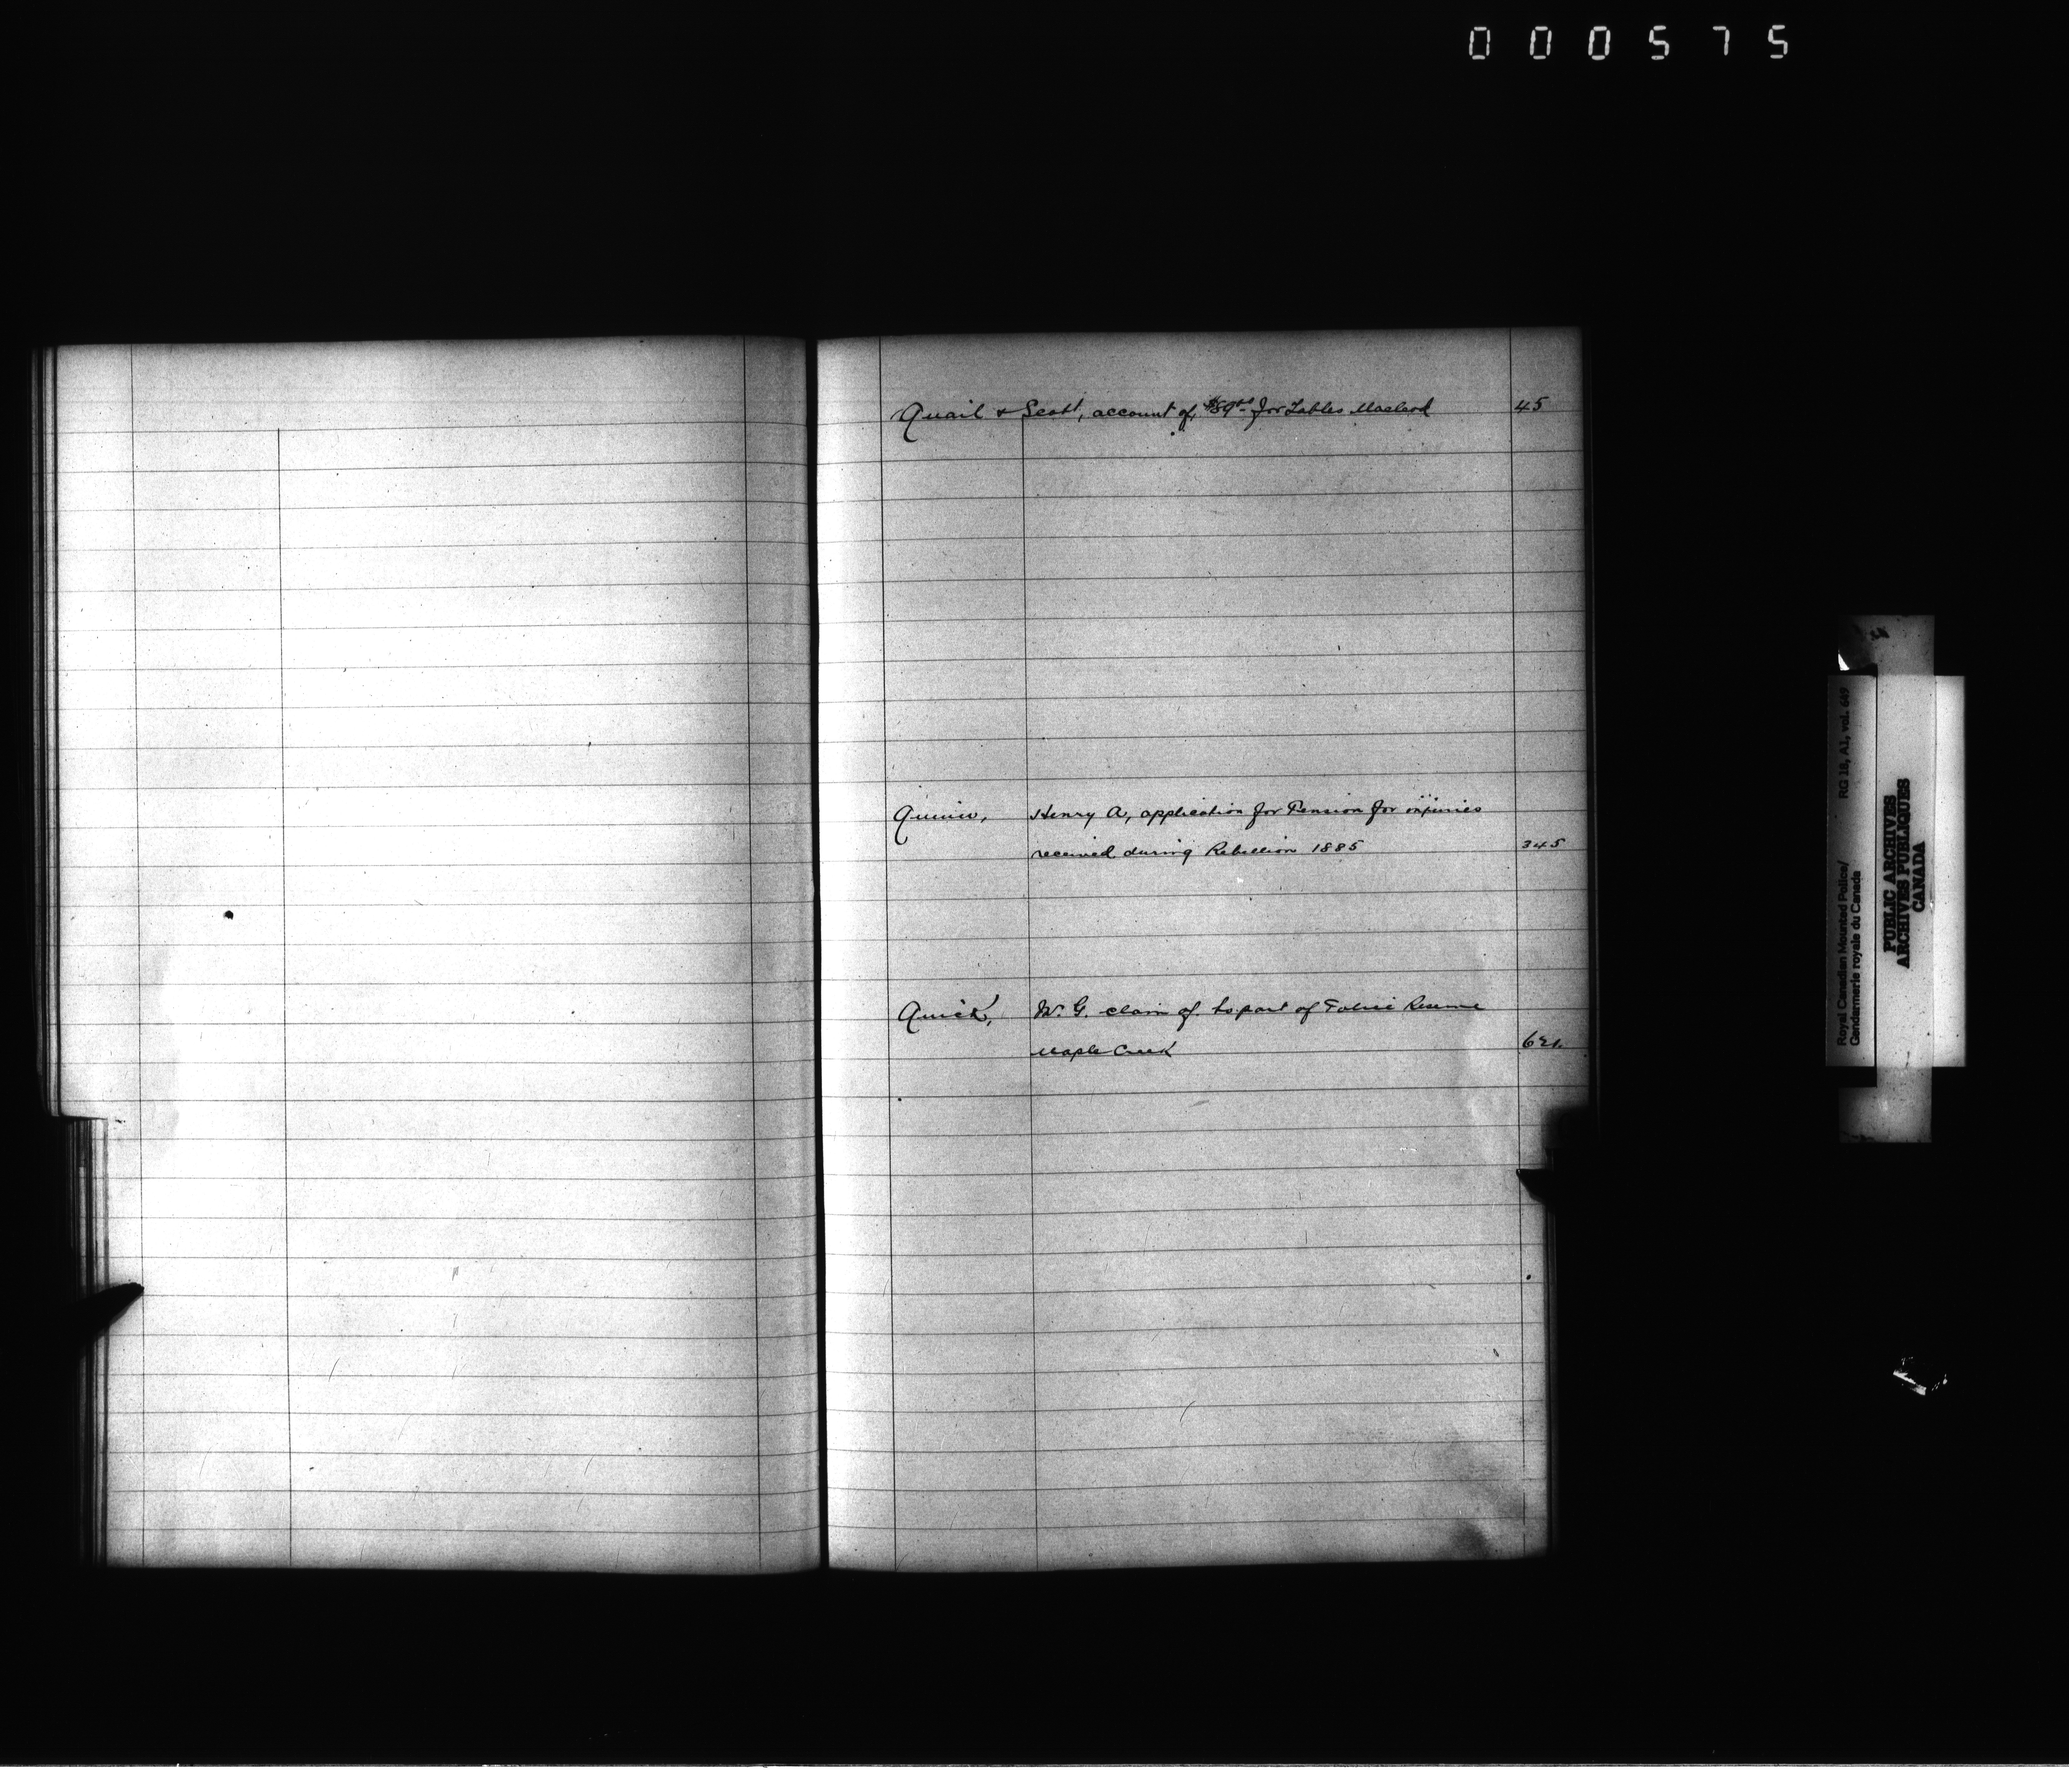 000575
Quail & Scott, account of, $89.00 for Tables Macleod 45
Quinn, Henry A, application for Pension for injuries
received during Rebellion 1885 345
Quick, W. G. claim of to part of Police Reserve
Maple Creek 621.
Royal Canadian Mounted Police/ RG 18, A1, vol. 669
Gendarmerie royale du Canada
PUBLIC ARCHIVES
ARCHIVES PUBLIQUES
CANADA